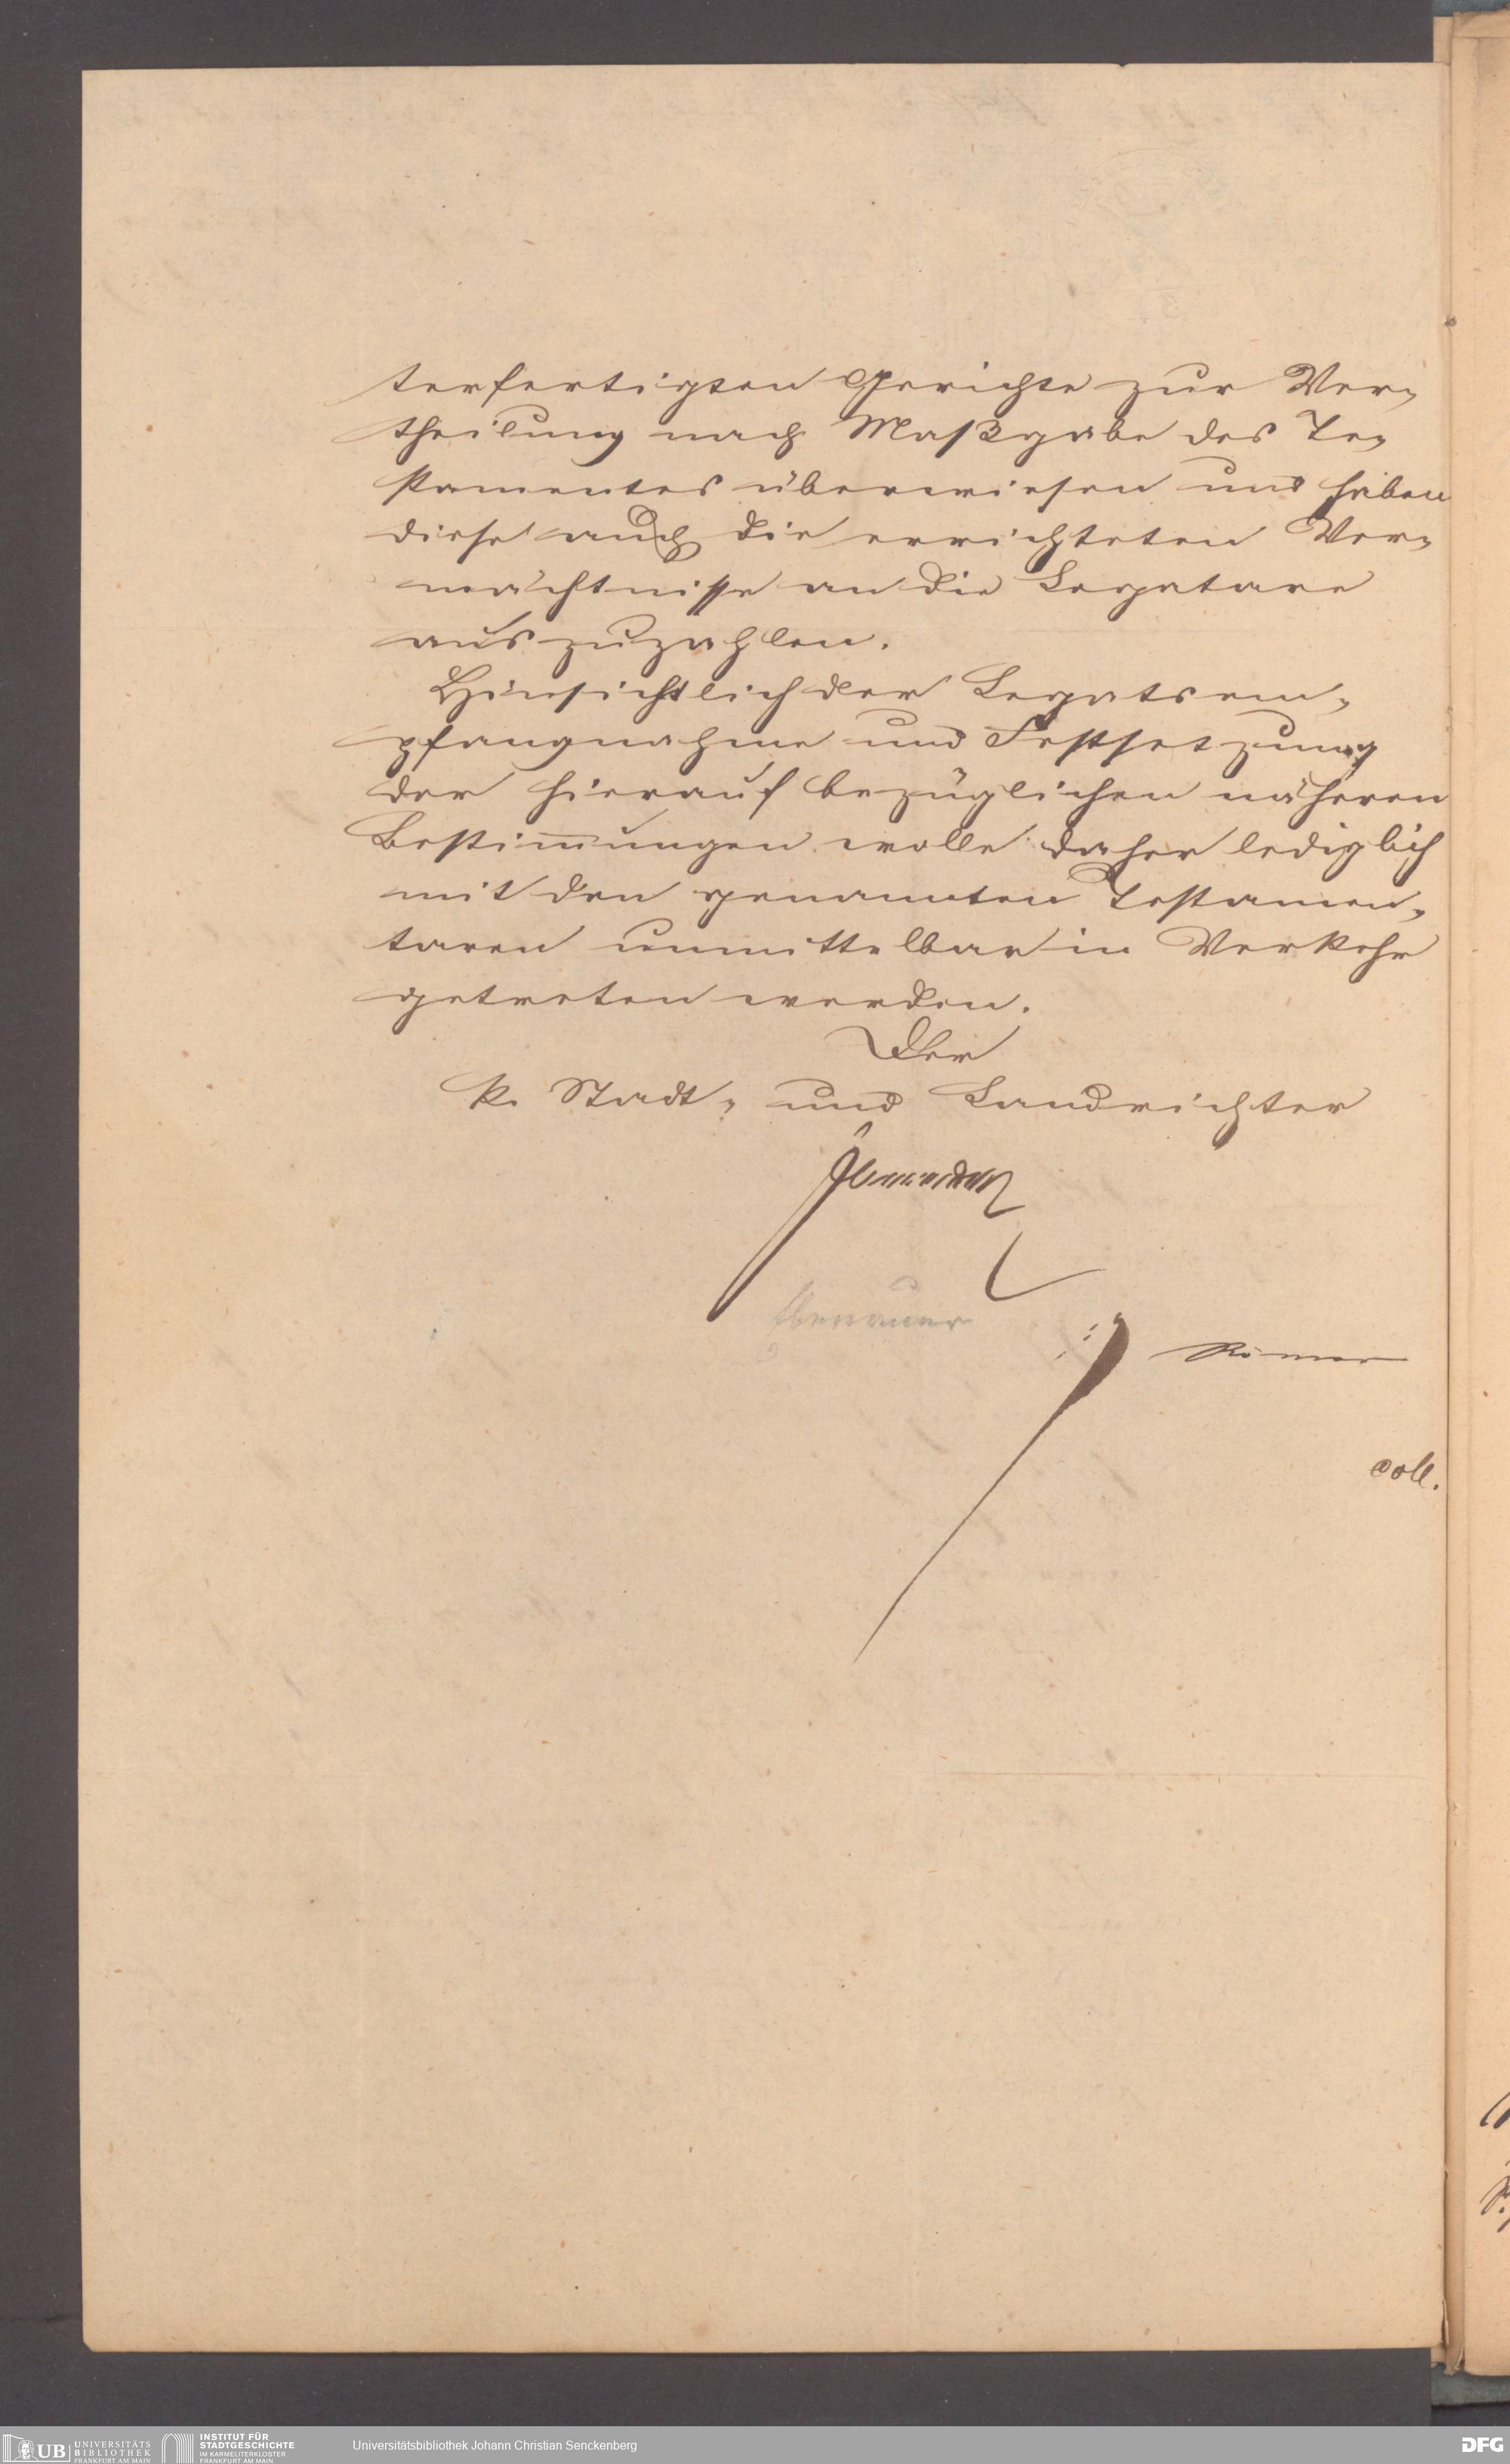 terfertigten Gerichte zur Ver-
theilung nach Maßgabe des Te-
stamentes überwiesen und haben
diese auch die errichteten Ver-
mächtnisse an die Legatare
auszuzahlen.
Hinsichtlich der Legatsem-
pfangnahme und Festsetzung
der hierauf bezüglichen näheren
Bestimmungen wolle daher lediglich
mit den genannten Testamen-
taren unmittelbar in Verkehr
getreten werden.
Der
k. Stadt- und Landrichter
coll.
UB UNIVERSITÄTS
BIBLIOTHEK
FRANKFURT AM MAIN
INSTITUT FÜR
STADTGESCHICHTE
IM KARMELITERKLOSTER
FRANKFURT AM MAIN
Universitätsbibliothek Johann Christian Senckenberg
DFG